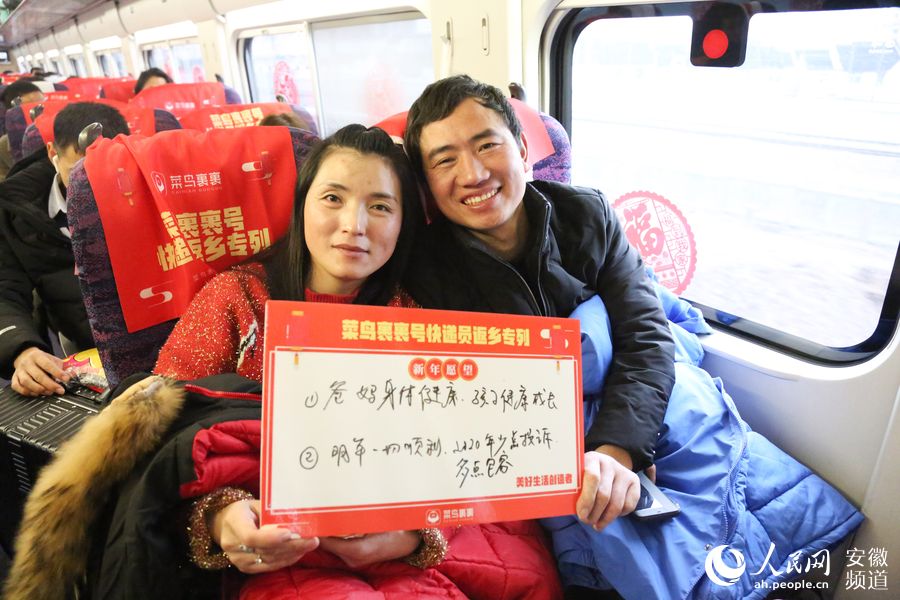 菜鸟裹裹
菜鸟裹裹号
快递返乡专列
菜鸟裹裹号快递员返乡专列
新年愿望
① 爸妈身体健康、孩子健康成长
② 明年一切顺利、2020年少点投诉
多点包容
美好生活创造者
菜鸟裹裹
福
人民网
ah.people.cn
安徽
频道